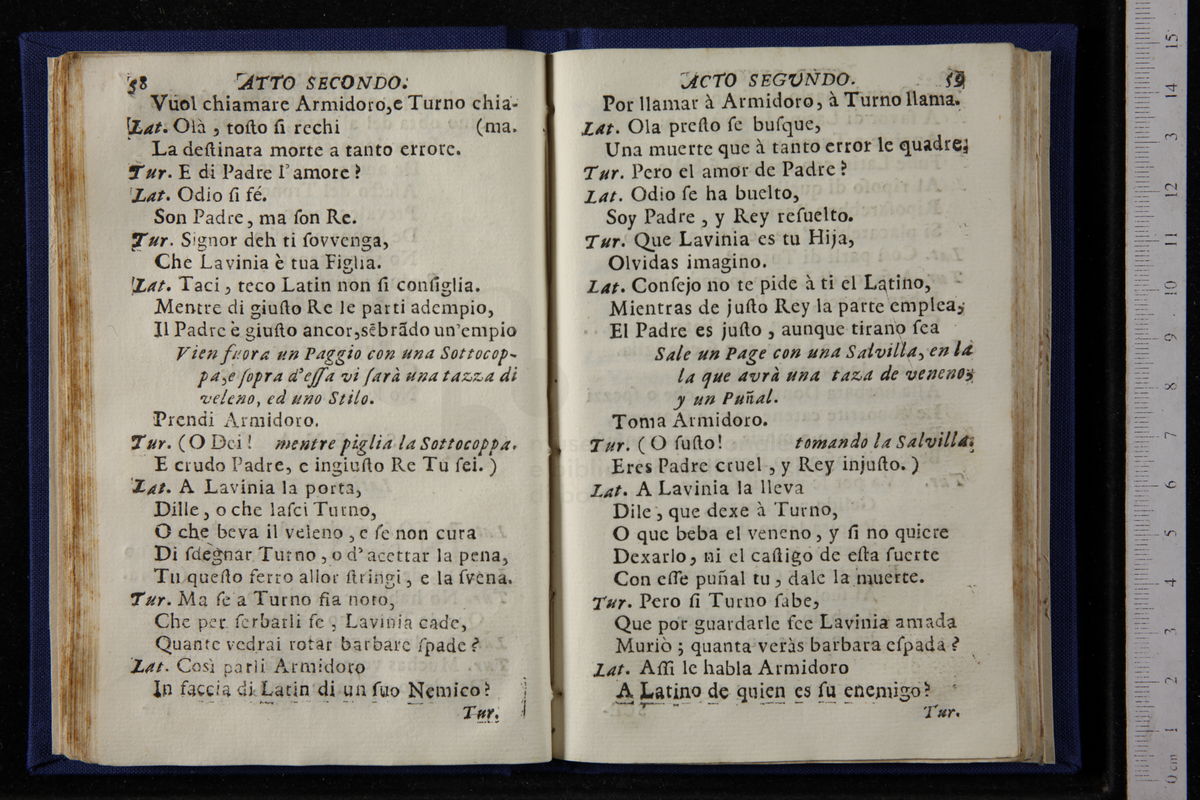 58 ATTO SECONDO.
Vuol chiamare Armidoro, e Turno chia-
Lat. Olà, toſto ſi rechi (ma.
La deſtinata morte a tanto errore.
Tur. E di Padre l'amore?
Lat. Odio ſi fé.
Son Padre, ma ſon Re.
Tur. Signor deh ti ſovvenga,
Che Lavinia è tua Figlia.
Lat. Taci, teco Latin non ſi conſiglia.
Mentre di giuſto Re le parti adempio,
Il Padre è giuſto ancor, sẽbrãdo un'empio
Vien fuora un Paggio con una Sottocop-
pa, e ſopra d'eſſa vi ſarà una tazza di
veleno, ed uno Stilo.
Prendi Armidoro.
Tur. (O Dei! mentre piglia la Sottocoppa.
E crudo Padre, e ingiuſto Re Tu ſei.)
Lat. A Lavinia la porta,
Dille, o che laſci Turno,
O che beva il veleno, e ſe non cura
Di ſdegnar Turno, o d'acettar la pena,
Tu queſto ferro allor ſtringi, e la ſvena.
Tur. Ma ſe a Turno fia noto,
Che per ſerbarli fe, Lavinia cade,
Quante vedrai rotar barbare ſpade?
Lat. Così parli Armidoro
In faccia di Latin di un ſuo Nemico?
Tur.
ACTO SEGUNDO. 59
Por llamar à Armidoro, à Turno llama.
Lat. Ola preſto ſe buſque,
Una muerte que à tanto error le quadre;
Tur. Pero el amor de Padre?
Lat. Odio ſe ha buelto,
Soy Padre, y Rey reſuelto.
Tur. Que Lavinia es tu Hija,
Olvidas imagino.
Lat. Conſejo no te pide à ti el Latino,
Mientras de juſto Rey la parte emplea,
El Padre es juſto, aunque tirano ſea
Sale un Page con una Salvilla, en la
la que avrà una taza de veneno,
y un Puñal.
Toma Armidoro.
Tur. (O ſuſto! tomando la Salvilla.
Eres Padre cruel, y Rey injuſto.)
Lat. A Lavinia la lleva
Dile, que dexe à Turno,
O que beba el veneno, y ſi no quiere
Dexarlo, ni el caſtigo de eſta ſuerte
Con eſſe puñal tu, dale la muerte.
Tur. Pero ſi Turno ſabe,
Que por guardarle fee Lavinia amada
Muriò; quanta veràs barbara eſpada?
Lat. Aſſi le habla Armidoro
A Latino de quien es ſu enemigo?
Tur.
0 cm 1 2 3 4 5 6 7 8 9 10 11 12 13 14 15